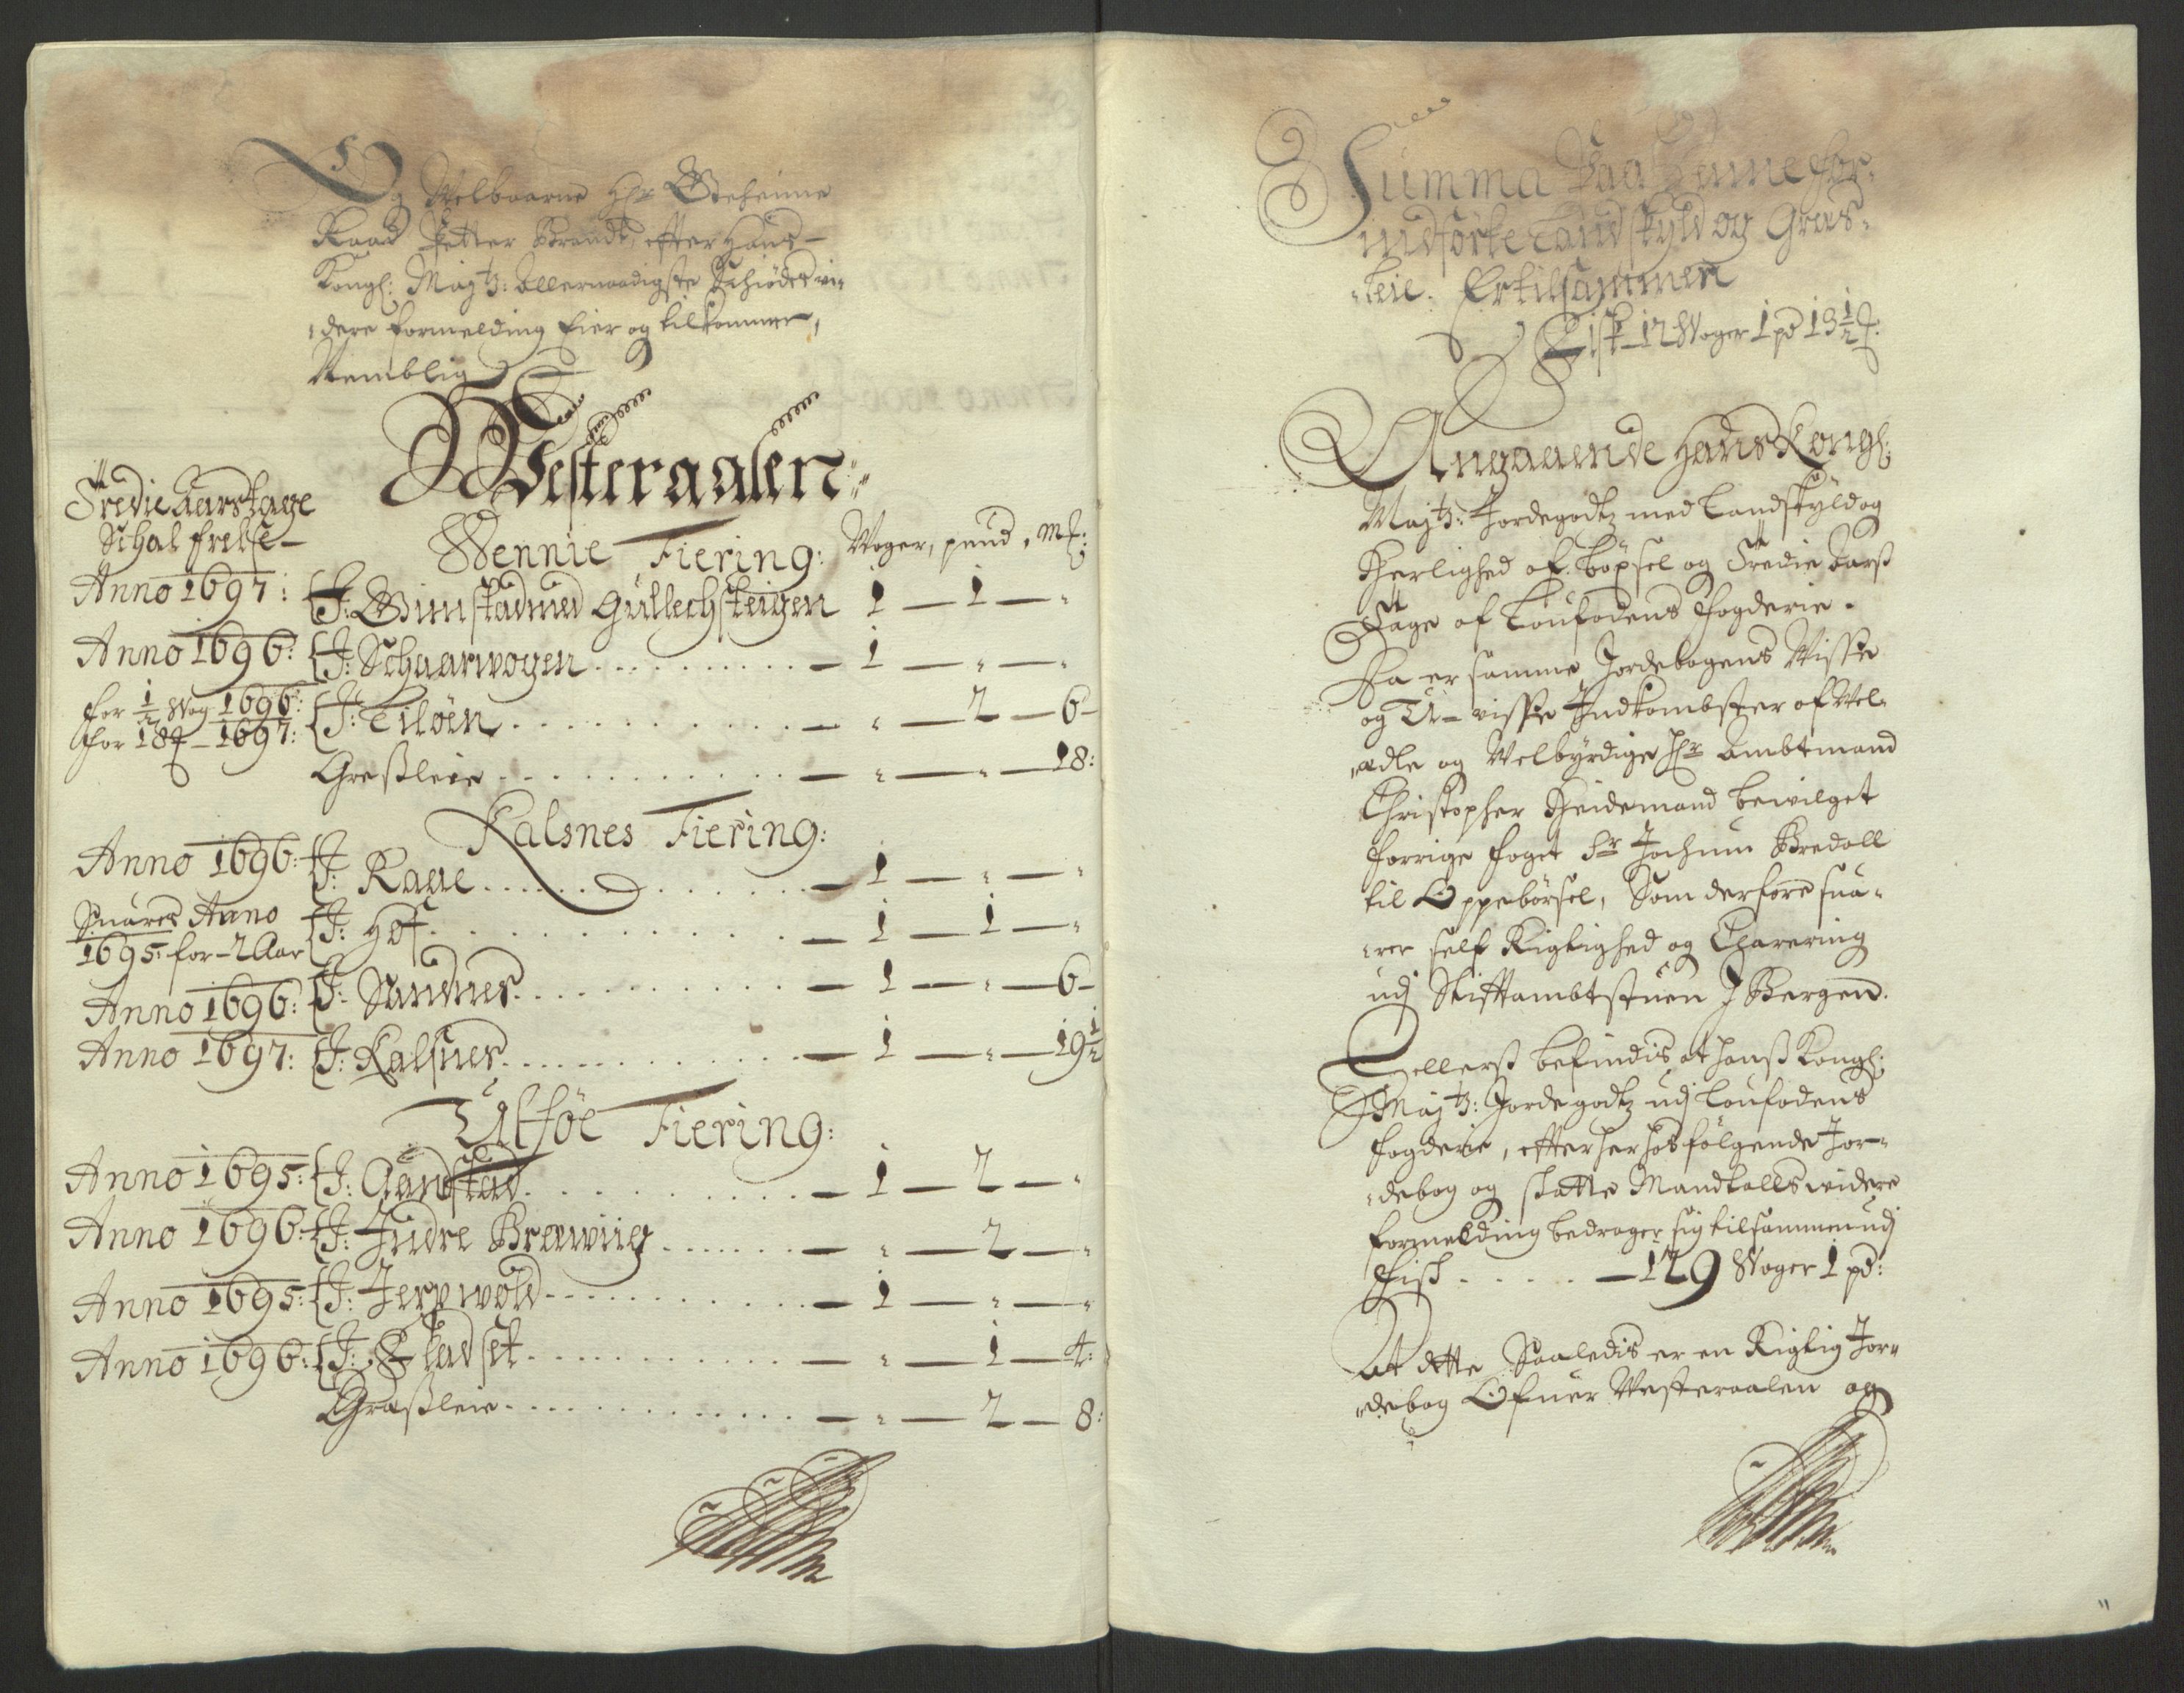 Og Welbaarne Hr Geheime
Raad Petter Brandt, efter Hans
Kongl: Mayts: Allernaadigste Schiødes vi-
dere formelding Eier og tilkommer,
Nemblig
Westeraalen
Tredie Aarstage
Schal frelse
Wennie Fiering: Woger, pund, mk:
Anno 1697: J: Wimstad med Gullechsteigen 1 — 1 — "
Anno 1696: J: Schaarwogen — 1 — " — "
for ½ Wog 1696:
for 18 mk 1697: J: Tiløen — " — 2 — 6
Græßleie — " — " — 18:
Kalsnes Fiering:
Anno 1696: J: Kaae — 1 — " — "
Suares Anno
1695 for 2 Aar J: Hof — 1 — 1 — "
Anno 1696: J: Sandnes — 1 — " — 6
Anno 1697: J: Kalsnes — 1 — " — 19½
Ulføe Fiering:
Anno 1695: J: Aandstad — 1 — 2 — "
Anno 1696: J: Indre Breiwiig — " — 2 — "
Anno 1695: J: Jerpwold — 1 — " — "
Anno 1696: J: Fladset — " — 1 — 4:
Græßleie — " — 2 — 8:
Summa Paa denne for:
indførte Landskyld og Græs-
leie. Er tilsammen
Fisk 12 Woger 1 pd 13½ mk:
Angaaende Hans Kongl:
Mayts: Jordegodtz med Landskyld og
Herlighed af Böxsel og Tredie Aars
Tage af Loufodens Fogderie.
Da er samme Jordebogens Visse
og U-visse Indkombster af Vel-
ædle og Velbyrdige Hr Ambtmand
Christopher Heidemand bevilget
forrige foget Sr Jochum Bredall
til Oppebörsel, Som derfore sua-
rer self Rigtighed og Clarering
udj Stifftambtstuen J Bergen.
Ellerß befindis at Hanß Kongl:
Mayts: Jordegodtz udj Loufodens
fogderie, efter herhos følgende Jor-
debog og skatte Mandtalls videre
formelding bedrager sig tilsammen udj
Fisk — 129 Woger 1 pd:
At dette Saaledis er en Rigtig Jor-
debog Ofuer Westeraalen og